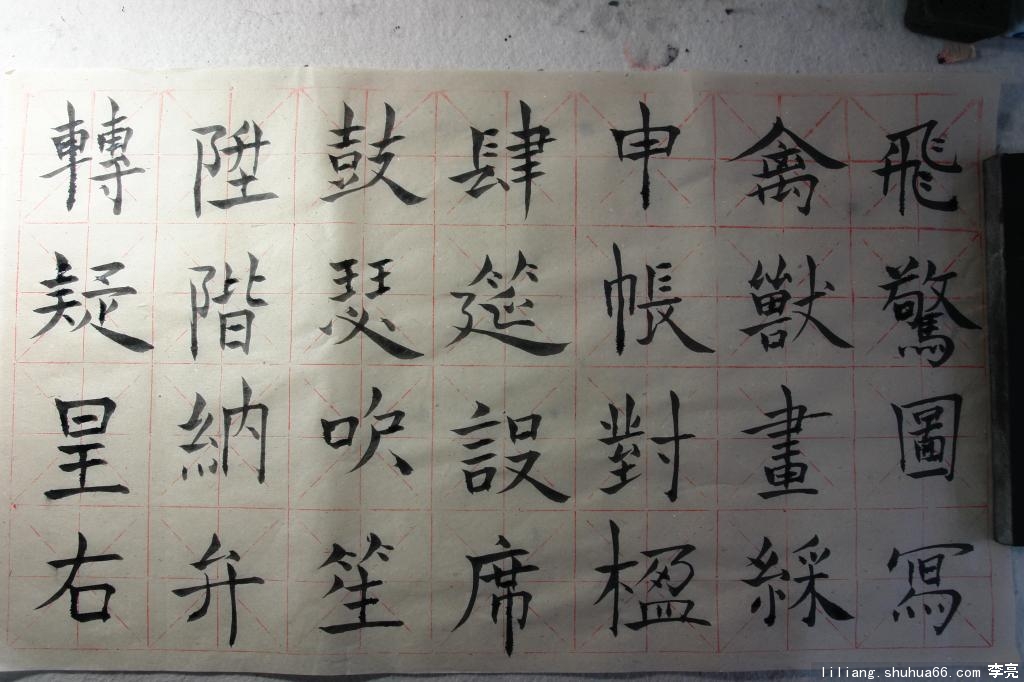 飛驚圖寫
禽獸畫綵
申帳對楹
肆筵設席
鼓瑟吹笙
陞階納弁
轉疑星右
liliang.shuhua66.com 李亮